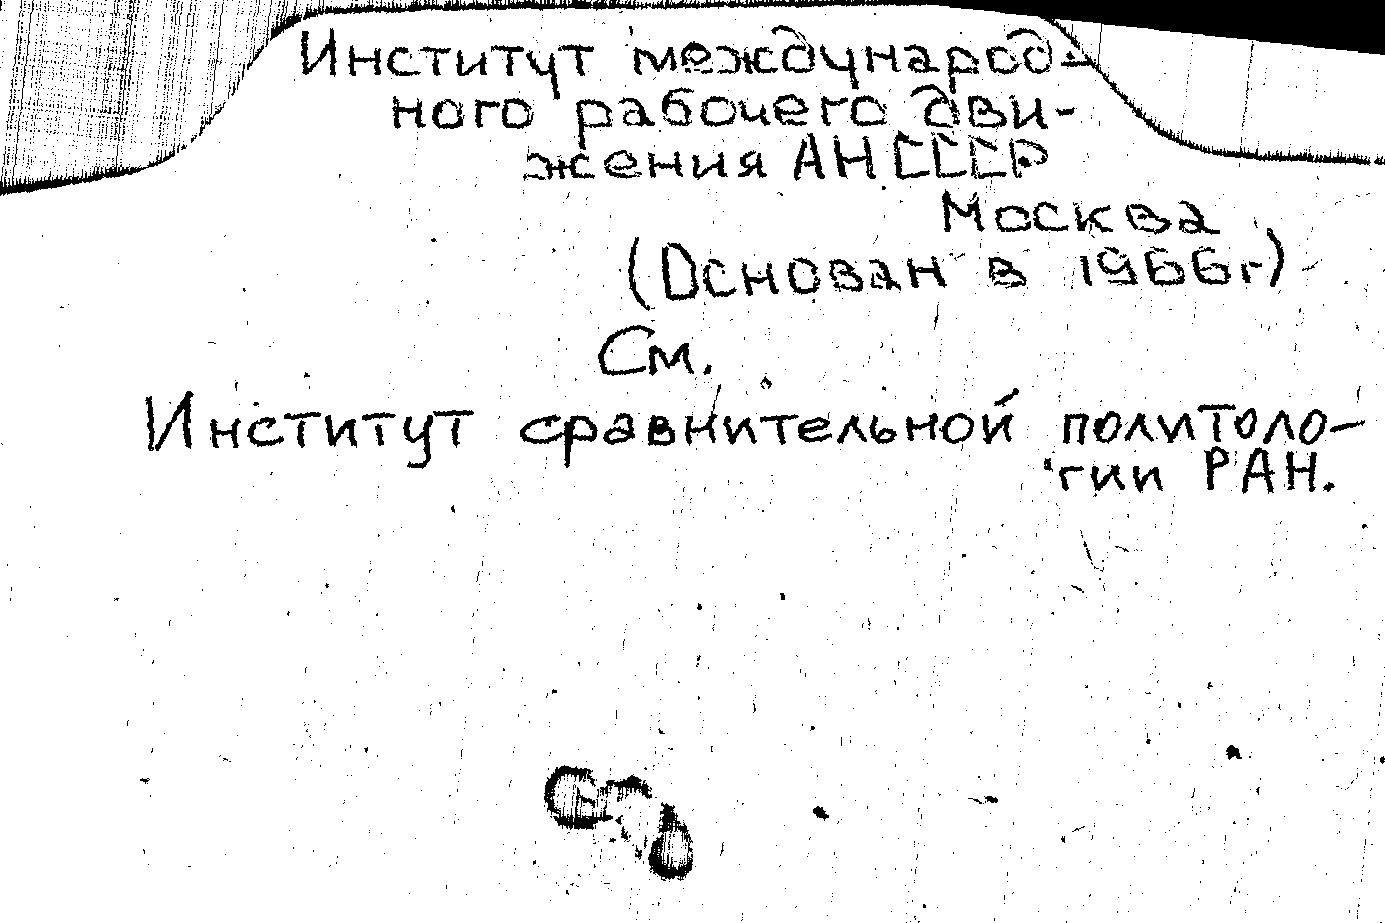 Институт международ-
ного рабочего дви-
жения АН СССР
Москва
(Основан в 1966г.)
См.
Институт сравнительной политоло-
гии РАН.